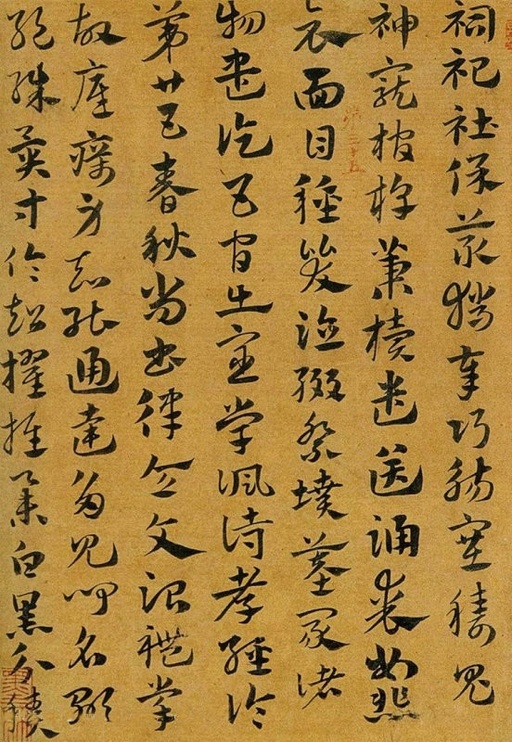 祠祀社保菆獵奉謁禓塞禱鬼
神寵棺椁槥櫝遣送誦喪弔悲
哀面目種哭泣醊祭墳墓冢諸
物盡訖五官出宦學諷詩孝經論
第廿五春秋尚書律令文治禮掌
故底厲身知能通達多見聞名顯
絕殊異等倫超擢推舉白黑分積